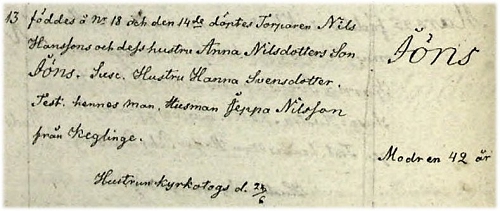 13 föddes å No 18 och den 14de döptes Torparen Nils
Hansſons och deſs hustru Anna Nilsdotters Son
Jöns. Susc. Hustru Hanna Svensdotter.
Test. hennes man, Husman Jeppa Nilsſon
från Keglinge.
Hustrun kyrkotogs d. 24/6
Jöns
Modren 42 år